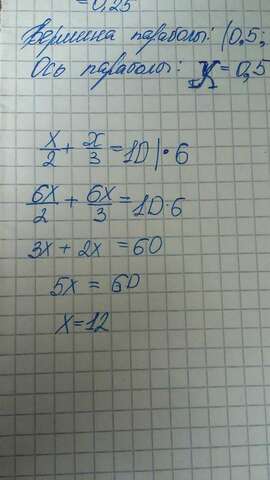 = 0,25
Вершина параболы: (0,5;
Ось параболы: x = 0,5
x/2 + x/3 = 10 | · 6
6x/2 + 6x/3 = 10·6
3x + 2x = 60
5x = 60
x = 12